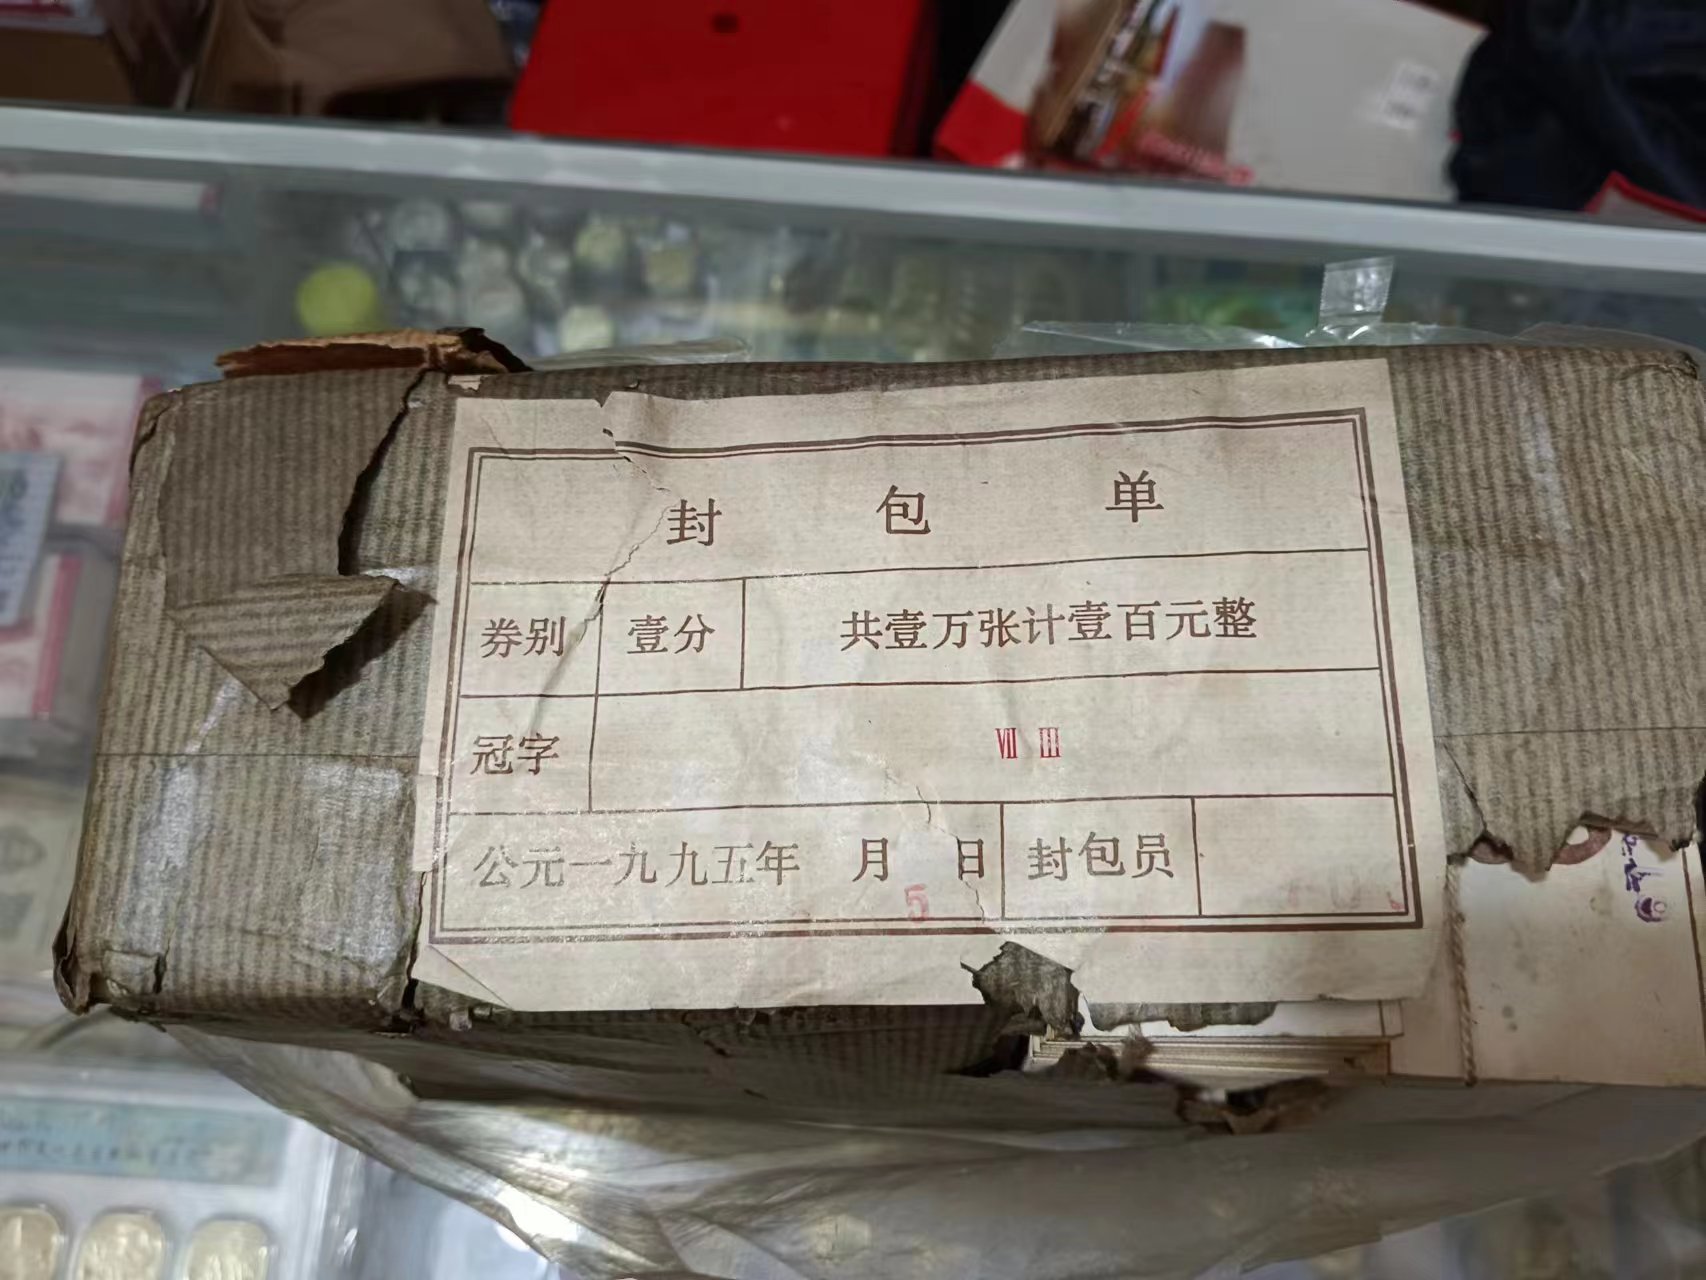 封包单
券别 壹分 共壹万张计壹百元整
冠字 Ⅶ Ⅲ
公元一九九五年 月 日 封包员
5